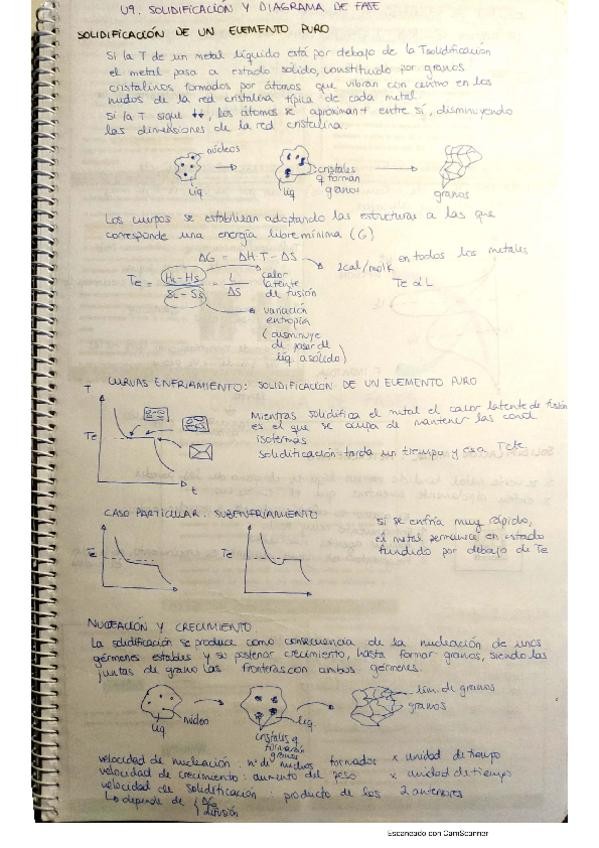 U9. SOLIDIFICACIÓN Y DIAGRAMA DE FASE
SOLIDIFICACIÓN DE UN ELEMENTO PURO
Si la T de un metal líquido está por debajo de la Tsolidificación
el metal pasa a estado sólido, constituido por granos
cristalinos formados por átomos que vibran con centro en los
nudos de la red cristalina típica de cada metal.
Si la T sigue ↓↓, los átomos se aproximan + entre sí, disminuyendo
las dimensiones de la red cristalina.
núcleos
líq
cristales
q forman
granos
líq
granos
Los cuerpos se estabilizan adoptando las estructuras a las que
corresponde una energía libre mínima (G)
ΔG = ΔH·T - ΔS
2cal/molK
en todos los metales
Te = HL-HS / SL-SS = L / ΔS
Te α L
calor
latente
de fusión
variación
entropía
(disminuye
de pasar de
líq a sólido)
CURVAS ENFRIAMIENTO: SOLIDIFICACIÓN DE UN ELEMENTO PURO
T
Te
t
Mientras solidifica el metal el calor latente de fusión
es el que se ocupa de mantener las cond
isotermas
solidificación tarda un tiempo y esa T cte
CASO PARTICULAR: SUBENFRIAMIENTO
Te
Te
si se enfría muy rápido,
el metal permanece en estado
fundido por debajo de Te
NUCLEACIÓN Y CRECIMIENTO
La solidificación se produce como consecuencia de la nucleación de unos
gérmenes estables y su posterior crecimiento, hasta formar granos, siendo las
juntas de grano las fronteras con ambos gérmenes.
líq
núcleo
líq
cristales q
formarán
granos
lím. de granos
granos
velocidad de nucleación: nº de núcleos formados x unidad de tiempo
velocidad de crecimiento: aumento del peso x unidad de tiempo
velocidad de solidificación: producto de los 2 anteriores
↳ depende de { ΔG
difusión
Escaneado con CamScanner